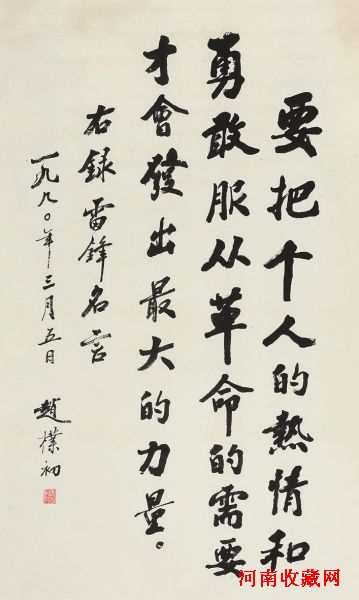 要把个人的熱情和
勇敢服从革命的需要
才會發出最大的力量。
右録雷鋒名言
一九九〇年三月五日 趙樸初
河南收藏网